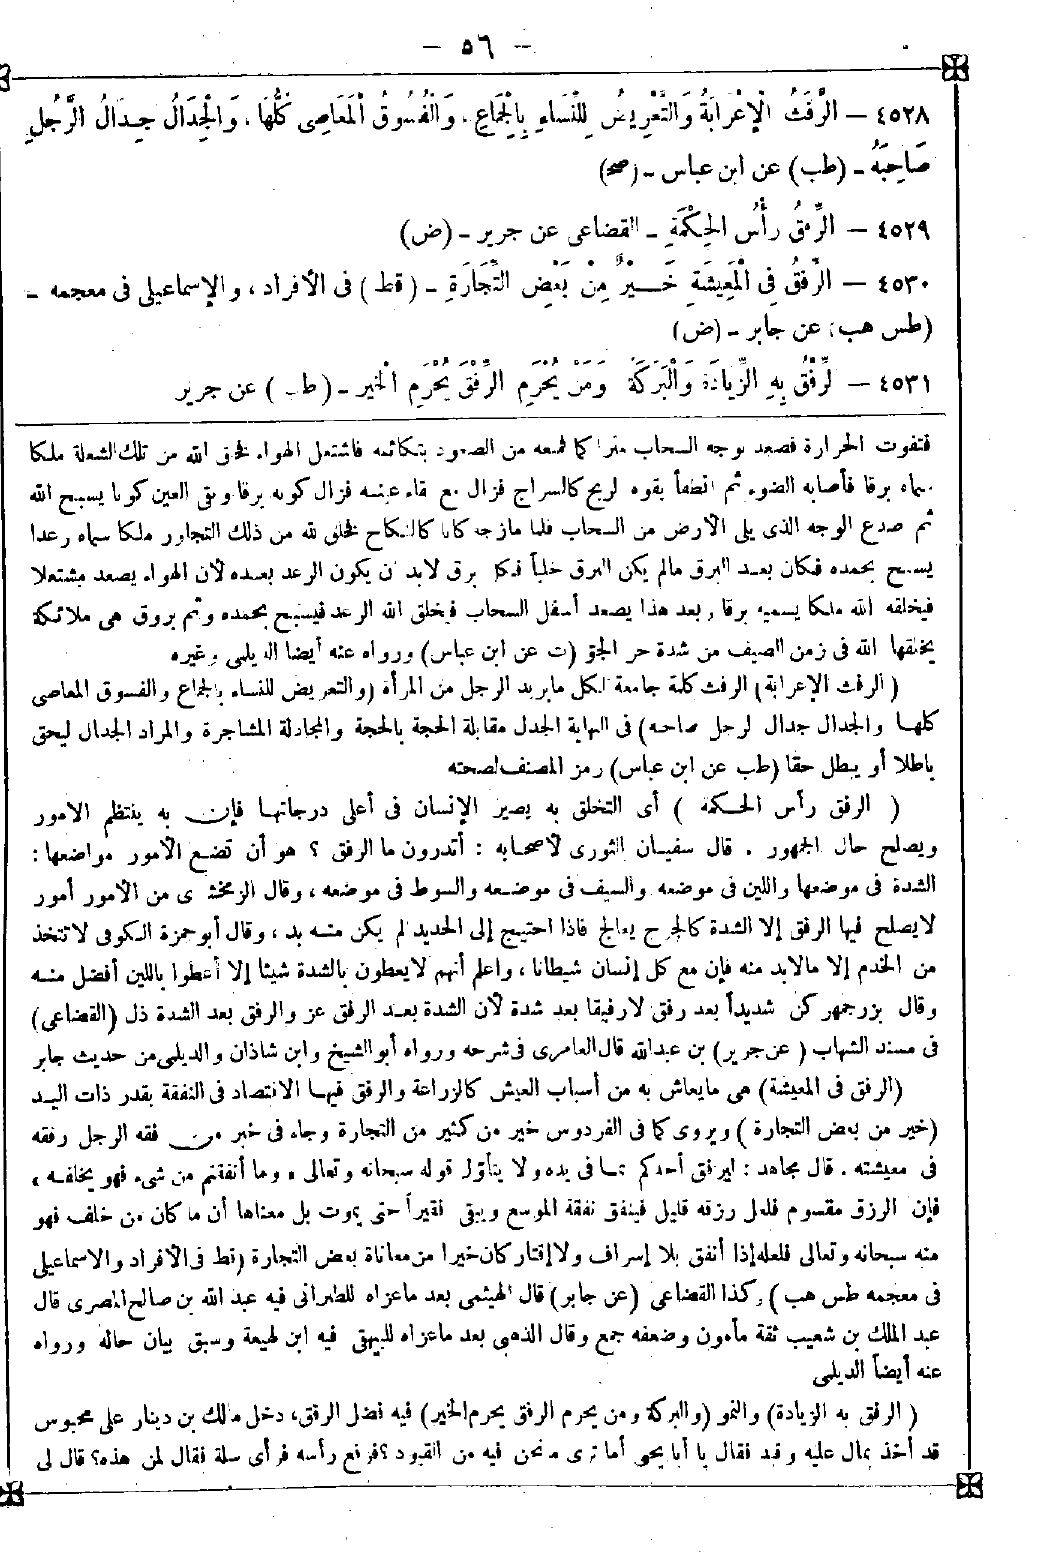 — ٥٦ —
٤٥٢٨ — الرَّفَثُ الْإِعْرَابَةُ وَالتَّعْرِيضُ لِلنِّسَاءِ بِالْجِمَاعِ، وَالْفُسُوقُ الْمَعَاصِى كُلُّهَا، وَالْجِدَالُ جِدَالُ الرَّجُلِ
صَاحِبَهُ ـ (طب) عن ابن عباس ـ (صح)
٤٥٢٩ — الرِّفْقُ رَأْسُ الْحِكْمَةِ ـ القضاعى عن جرير ـ (ض)
٤٥٣٠ — الرِّفْقُ فِى الْمَعِيشَةِ خَيْرٌ مِنْ بَعْضِ التِّجَارَةِ ـ (قط) فى الأفراد، والإسماعيلى فى معجمه ـ
(طس هب) عن جابر ـ (ض)
٤٥٣١ — الرِّفْقُ بِهِ الزِّيَادَةُ وَالْبَرَكَةُ وَمَنْ يُحْرَمِ الرِّفْقَ يُحْرَمِ الْخير ـ (طب) عن جرير
فتفوت الحرارة فصعد بوجه السحاب كما فمنعه من الصعود بتكاثفه فاشتعل الهواء فخلق الله من تلك الشعلة ملكا
سماه برقا فأضاء به الضوء ثم انطفأ بقوة الريح كالسراج فزال مع بقاء عينه فزال كونه برقا وبقى العين كونا يسبح الله
ثم صدع الوجه الذى يلى الأرض من السحاب فلما مازجه كانا كالنكاح فخلق الله من ذلك التجاور ملكا سماه رعدا
يسبح بحمده فكان بعد البرق مالم يكن البرق خلبا فكل برق لابد أن يكون الرعد بعده لأن الهواء يصعد مشتعلا
فيخلقه الله ملكا يسميه برقا وبعد هذا يصعد أسفل السحاب فيخلق الله الرعد فيسبح بحمده وثم بروق هى ملائكة
يخلقها الله فى زمن الصيف من شدة حر الجو (ت عن ابن عباس) ورواه عنه أيضا الديلمى وغيره
(الرفث الإعرابة) الرفث كلمة جامعة لكل ما يريد الرجل من المرأة (والتعريض للنساء بالجماع والفسوق المعاصى
كلها والجدال جدال الرجل صاحبه) فى النهاية الجدل مقابلة الحجة بالحجة والمجادلة المشاجرة والمراد الجدال ليحق
باطلا أو يبطل حقا (طب عن ابن عباس) رمز المصنف لصحته
(الرفق رأس الحكمة) أى التخلق به يصير الإنسان فى أعلى درجاتها فإن به ينتظم الأمور
ويصلح حال الجمهور. قال سفيان الثورى لأصحابه: أتدرون ما الرفق؟ هو أن تضع الأمور مواضعها:
الشدة فى موضعها واللين فى موضعه والسيف فى موضعه والسوط فى موضعه، وقال الزمخشرى من الأمور أمور
لا يصلح فيها الرفق إلا الشدة كالجرح يعالج فاذا احتيج إلى الحديد لم يكن منه بد، وقال أبو حمزة الكوفى لا تتخذ
من الخدم إلا ما لا بد منه فإن مع كل إنسان شيطانا، واعلم أنهم لا يعطون بالشدة شيئا إلا أعطوا باللين أفضل منه
وقال بزرجمهر كن شديداً بعد رفق لا رفيقا بعد شدة لأن الشدة بعد الرفق عز والرفق بعد الشدة ذل (القضاعى)
فى مسند الشهاب (عن جرير) بن عبدالله قال العامرى فى شرحه ورواه أبو الشيخ وابن شاذان والديلمى من حديث جابر
(الرفق فى المعيشة) هى ما يعاش به من أسباب العيش كالزراعة والرفق فيها الاقتصاد فى النفقة بقدر ذات اليد
(خير من بعض التجارة) ويروى كما فى الفردوس خير من كثير من التجارة وجاء فى خبر من فقه الرجل رفقه
فى معيشته. قال مجاهد: ليرفق أحدكم بما فى يده ولا يتأول قوله سبحانه وتعالى «وما أنفقتم من شىء فهو يخلفه»
فإن الرزق مقسوم فلعل رزقه قليل فينفق نفقة الموسع ويبقى فقيراً حتى يموت بل معناها أن ما كان من خلف فهو
منه سبحانه وتعالى فلعله إذا أنفق بلا إسراف ولا إقتار كان خيرا من معاناة بعض التجارة (قط فى الأفراد والاسماعيلى
فى معجمه طس هب) وكذا القضاعى (عن جابر) قال الهيثمى بعد ما عزاه للطبرانى فيه عبد الله بن صالح المصرى قال
عبد الملك بن شعيب ثقة مأمون وضعفه جمع وقال الذهبى بعد ما عزاه للبيهقى فيه ابن لهيعة وسبق بيان حاله ورواه
عنه أيضاً الديلمى
(الرفق به الزيادة) والنمو (والبركة ومن يحرم الرفق يحرم الخير) فيه فضل الرفق، دخل مالك بن دينار على محبوس
قد أخذ بمال عليه وقيد فقال يا أبا يحيى أما ترى ما نحن فيه من القيود؟ فرفع رأسه فرأى سلة فقال لمن هذه؟ قال لى